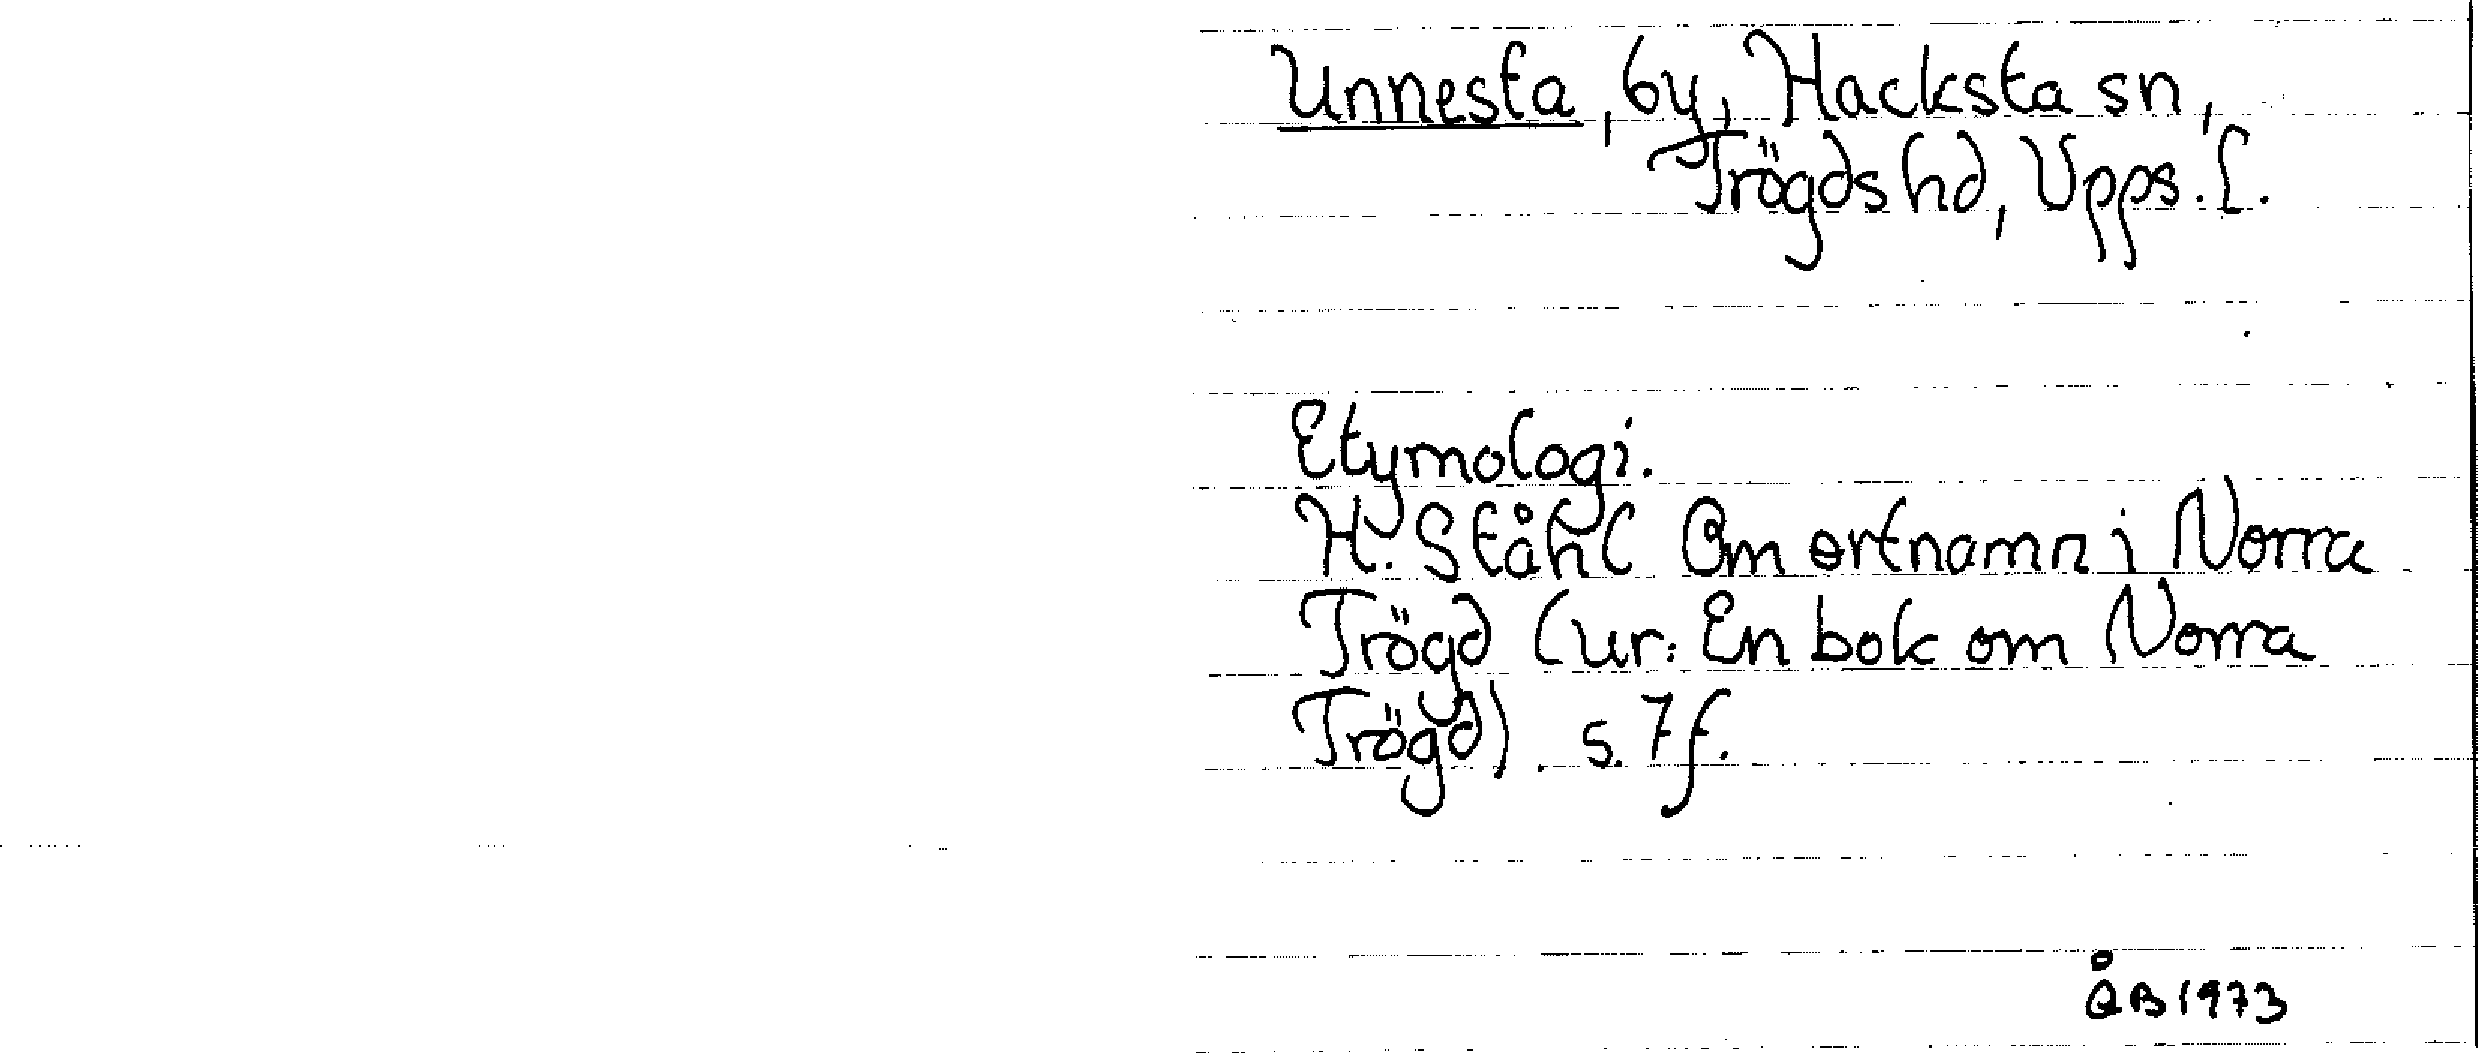 Unnesta, by, Hacksta sn,
Trögds hd, Upps. l.
Etymologi.
H. Ståhl Om ortnamn i Norra
Trögd (ur: En bok om Norra
Trögd). s. 7 f.
ÅB 1973